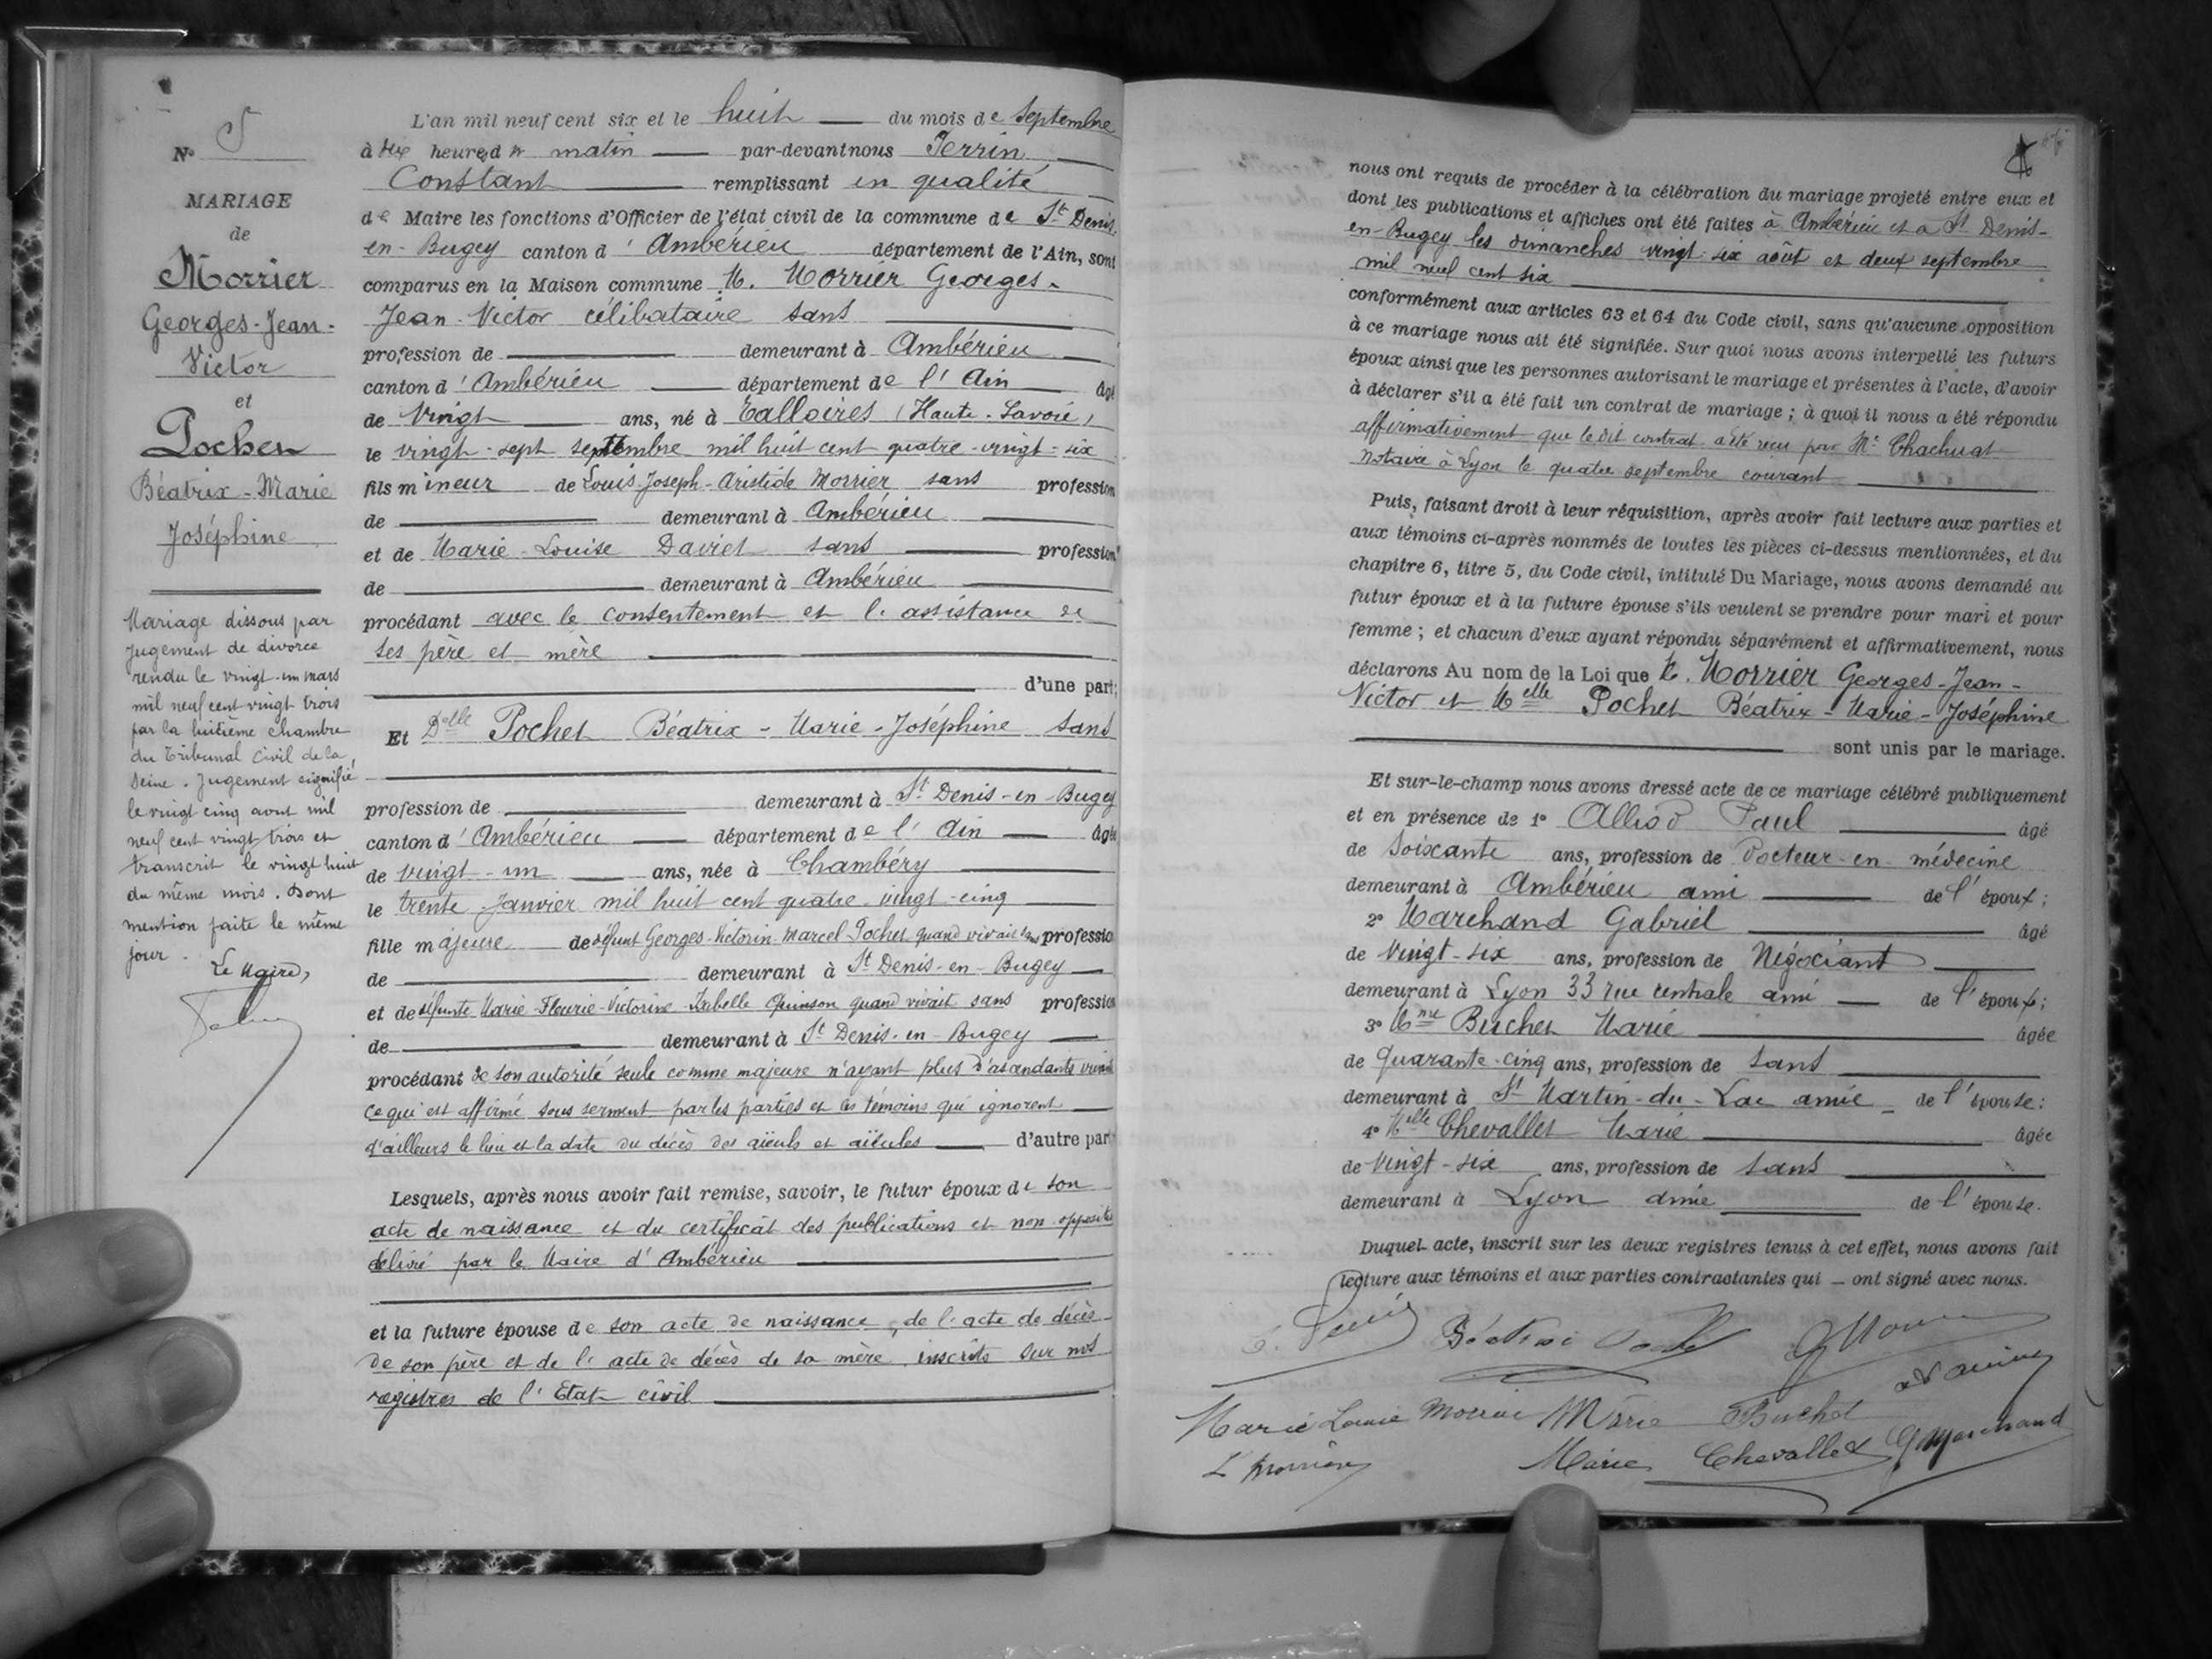 N° 5
MARIAGE
de
Morrier
Georges-Jean-
Victor
et
Pochet
Béatrix-Marie
Joséphine
Mariage dissous par
jugement de divorce
rendu le vingt-un mars
mil neuf cent vingt trois
par la huitième chambre
du Tribunal Civil de la
Seine. Jugement signifié
le vingt cinq aout mil
neuf cent vingt trois et
transcrit le vingt huit
du même mois. Dont
mention faite le même
jour.
Le Maire,
L'an mil neuf cent six et le huit du mois de Septembre
à dix heures du matin par-devant nous Perrin
Constant remplissant en qualité
de Maire les fonctions d'Officier de l'état civil de la commune de St Denis-
en-Bugey canton d'Ambérieu département de l'Ain, sont
comparus en la Maison commune M. Morrier Georges-
Jean-Victor célibataire sans
profession de demeurant à Ambérieu
canton d'Ambérieu département de l'Ain âgé
de vingt ans, né à Talloires (Haute-Savoie)
le vingt-sept septembre mil huit cent quatre-vingt-six
fils mineur de Louis-Joseph-Aristide Morrier sans profession
de demeurant à Ambérieu
et de Marie-Louise Daviet sans profession
de demeurant à Ambérieu
procédant avec le consentement et l'assistance de
ses père et mère
d'une part;
Et Delle Pochet Béatrix-Marie-Joséphine sans
profession de demeurant à St Denis-en-Bugey
canton d'Ambérieu département de l'Ain âgée
de vingt-un ans, née à Chambéry
le trente Janvier mil huit cent quatre-vingt-cinq
fille majeure de défunt Georges-Victorin-Marcel Pochet quand vivait sans profession
de demeurant à St Denis-en-Bugey
et de défunte Marie-Fleurie-Victorine-Isabelle Quinson quand vivait sans profession
de demeurant à St Denis-en-Bugey
procédant de son autorité seule comme majeure n'ayant plus d'ascendants vivants
ce qui est affirmé sous serment par les parties et les témoins qui ignorent
d'ailleurs le lieu et la date du décès des aïeuls et aïeules d'autre part
Lesquels, après nous avoir fait remise, savoir, le futur époux de son
acte de naissance et du certificat des publications et non opposition
délivré par le Maire d'Ambérieu
et la future épouse de son acte de naissance, de l'acte de décès
de son père et de l'acte de décès de sa mère inscrits sur nos
registres de l'Etat civil
nous ont requis de procéder à la célébration du mariage projeté entre eux et
dont les publications et affiches ont été faites à Ambérieu et à St Denis-
en-Bugey les dimanches vingt-six août et deux septembre
mil neuf cent six
conformément aux articles 63 et 64 du Code civil, sans qu'aucune opposition
à ce mariage nous ait été signifiée. Sur quoi nous avons interpellé les futurs
époux ainsi que les personnes autorisant le mariage et présentes à l'acte, d'avoir
à déclarer s'il a été fait un contrat de mariage; à quoi il nous a été répondu
affirmativement que ledit contrat a été reçu par Me Chachuat
notaire à Lyon le quatre septembre courant
Puis, faisant droit à leur réquisition, après avoir fait lecture aux parties et
aux témoins ci-après nommés de toutes les pièces ci-dessus mentionnées, et du
chapitre 6, titre 5, du Code civil, intitulé Du Mariage, nous avons demandé au
futur époux et à la future épouse s'ils veulent se prendre pour mari et pour
femme; et chacun d'eux ayant répondu séparément et affirmativement, nous
déclarons Au nom de la Loi que M. Morrier Georges-Jean-
Victor et Melle Pochet Béatrix-Marie-Joséphine
sont unis par le mariage.
Et sur-le-champ nous avons dressé acte de ce mariage célébré publiquement
et en présence de 1° Alliod Paul âgé
de soixante ans, profession de Docteur-en-médecine
demeurant à Ambérieu ami de l'époux;
2° Marchand Gabriel âgé
de vingt-six ans, profession de Négociant
demeurant à Lyon 33 rue centrale ami de l'époux;
3° Mme Buchet Marie âgée
de quarante-cinq ans, profession de sans
demeurant à St Martin-du-Lac amie de l'épouse;
4° Melle Chevallet Marie âgée
de vingt-six ans, profession de sans
demeurant à Lyon amie de l'épouse.
Duquel acte, inscrit sur les deux registres tenus à cet effet, nous avons fait
lecture aux témoins et aux parties contractantes qui ont signé avec nous.
Marie Louise Morrier Marie Buchet
L Morrier Marie Chevallet G Marchand